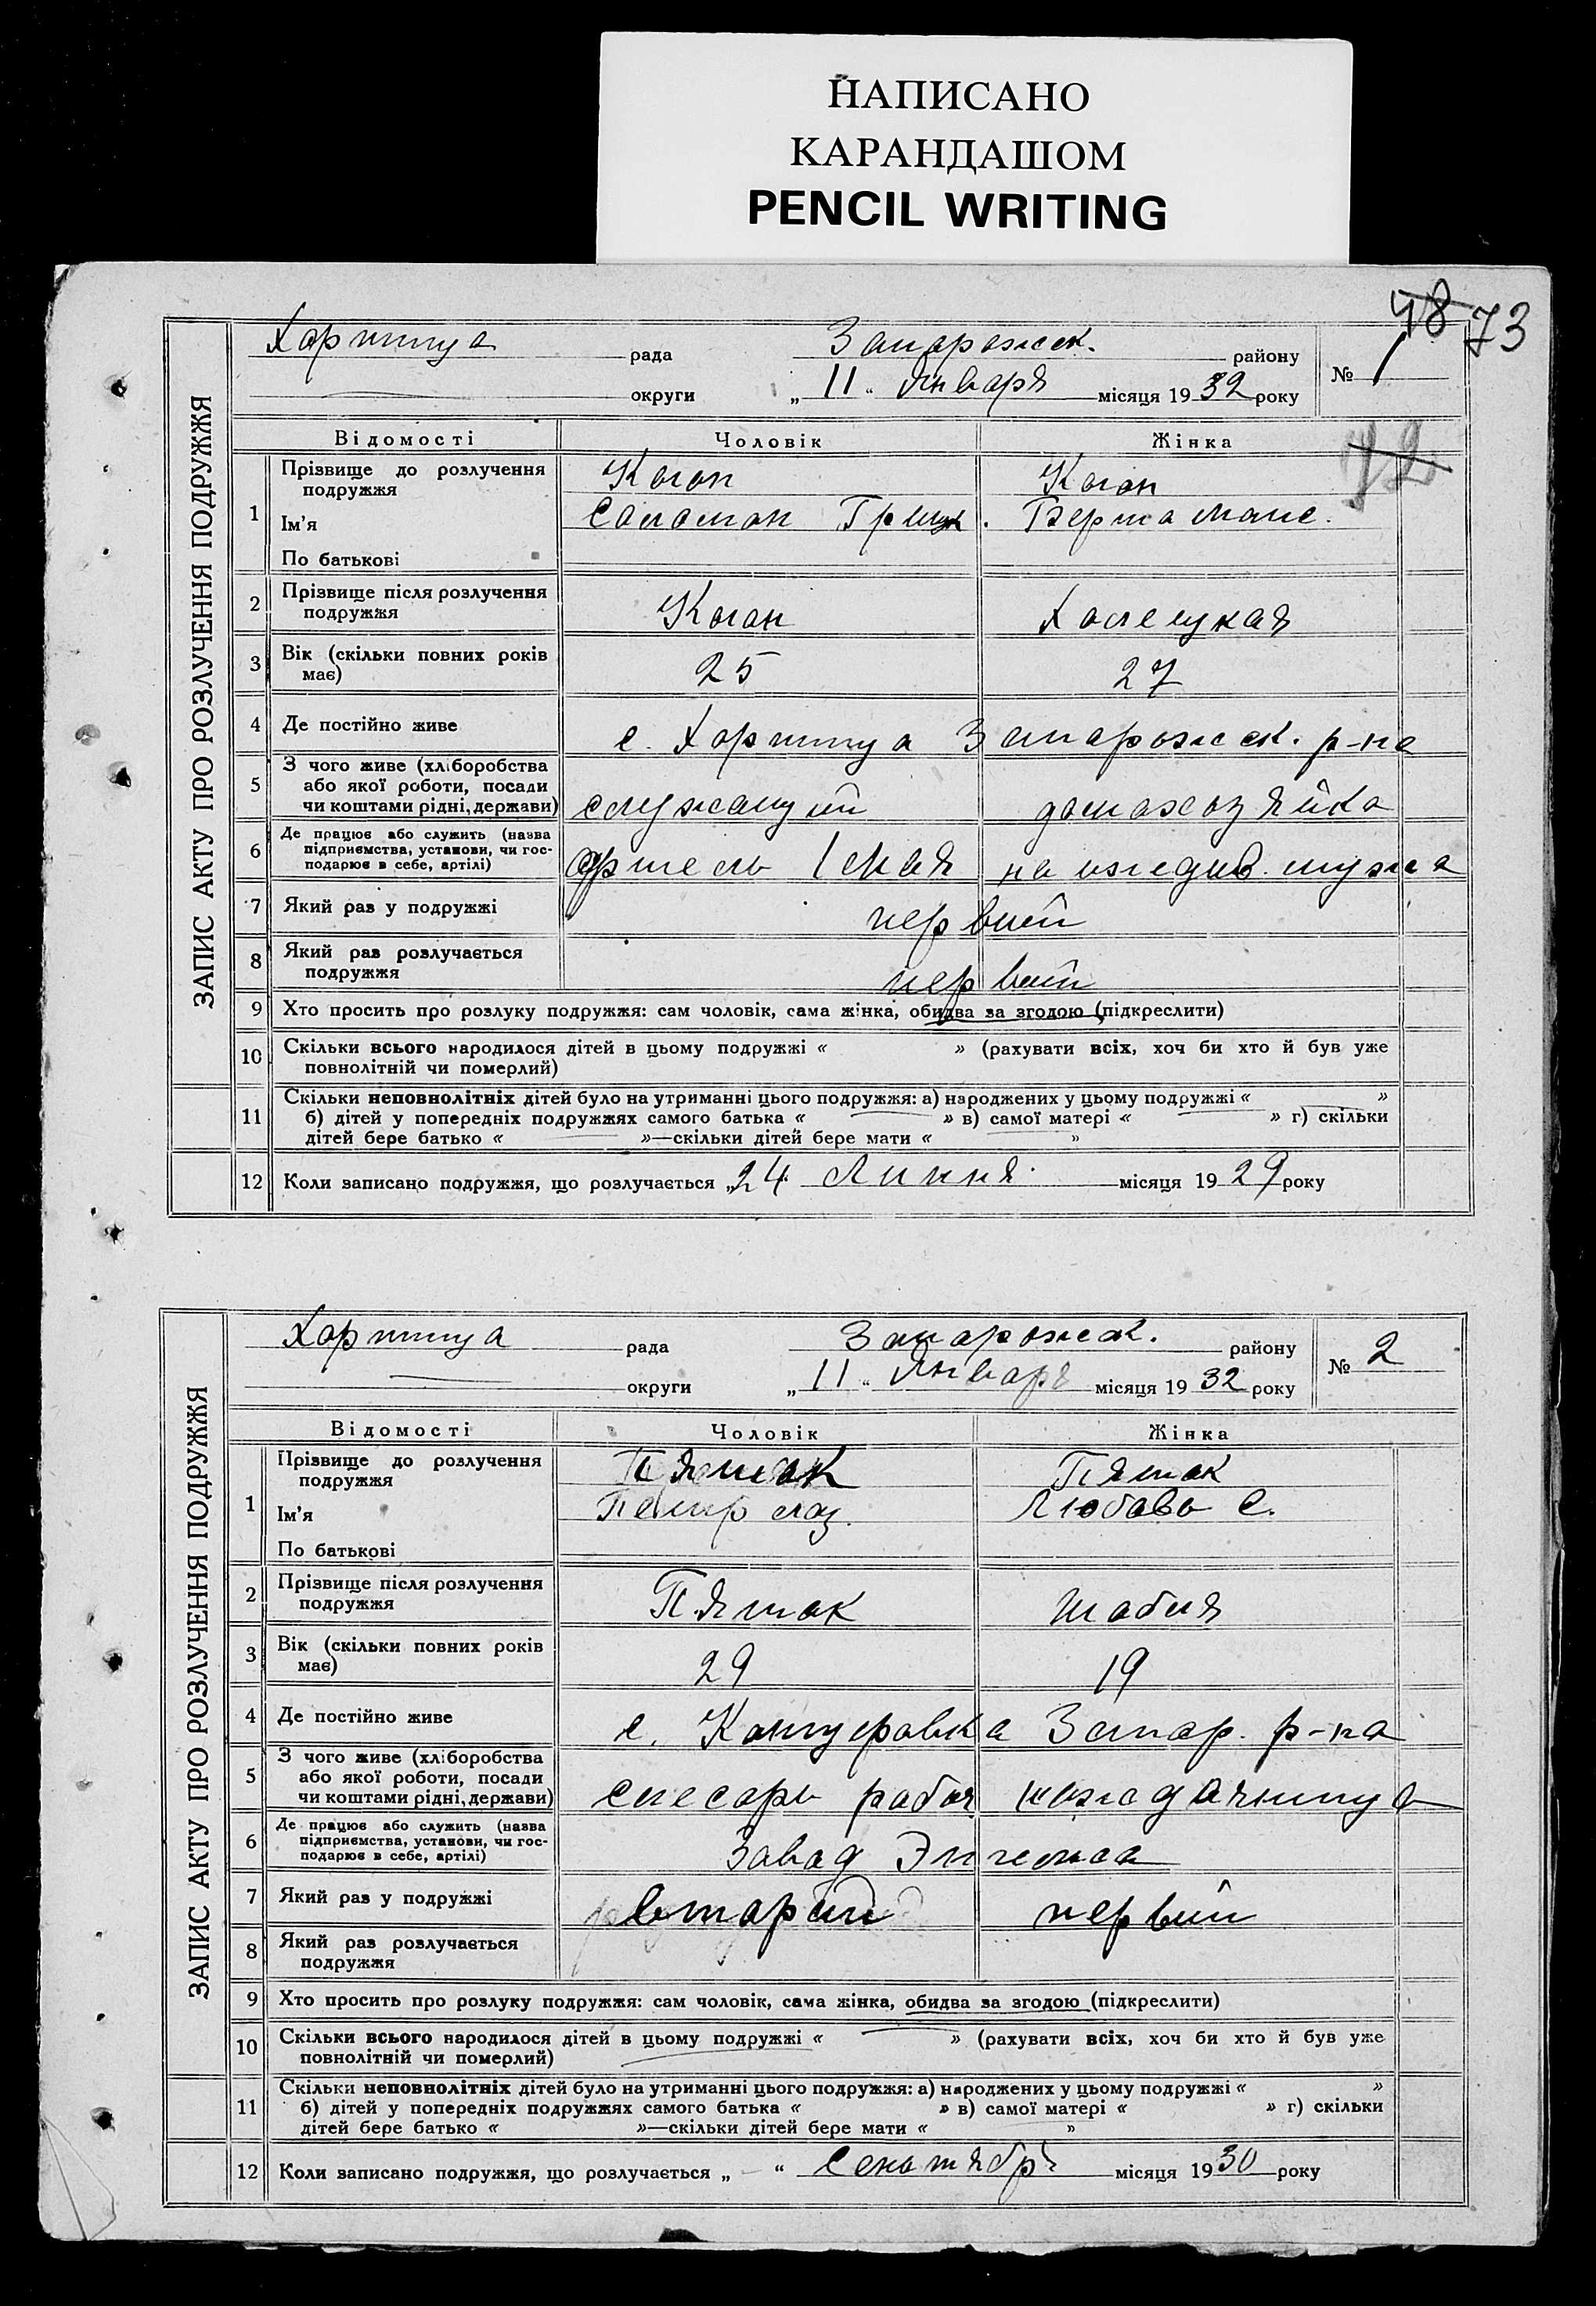 НАПИСАНО
КАРАНДАШОМ
PENCIL WRITING
48 73
ЗАПИС АКТУ ПРО РОЗЛУЧЕННЯ ПОДРУЖЖЯ
Хортица рада Запорожск. району
округи „ 11 “ Января місяця 19 32 року
№ 1
72
Відомості Чоловік Жінка
1 Прізвище до розлучення подружжя Коган Коган
Ім'я Саломон Берта
По батькові
2 Прізвище після розлучення подружжя Коган
3 Вік (скільки повних років має) 25 27
4 Де постійно живе с. Хортица Запорожск. р-на
5 З чого живе (хліборобства або якої роботи, посади чи коштами рідні, держави) служащий домахозяйка
6 Де працює або служить (назва підприємства, установи, чи господарює в себе, артілі) артель 1 Мая на иждив. мужа
7 Який раз у подружжі первый
8 Який раз розлучається подружжя первый
9 Хто просить про розлуку подружжя: сам чоловік, сама жінка, обидва за згодою (підкреслити)
10 Скільки всього народилося дітей в цьому подружжі « » (рахувати всіх, хоч би хто й був уже
повнолітній чи померлий)
11 Скільки неповнолітніх дітей було на утриманні цього подружжя: а) народжених у цьому подружжі « »
б) дітей у попередніх подружжях самого батька « » в) самої матері « » г) скільки
дітей бере батько « »—скільки дітей бере мати « »
12 Коли записано подружжя, що розлучається „24 Липня місяця 19 29 року
ЗАПИС АКТУ ПРО РОЗЛУЧЕННЯ ПОДРУЖЖЯ
Хортица рада Запорожск. району
округи „ 11 “ Января місяця 19 32 року
№ 2
Відомості Чоловік Жінка
1 Прізвище до розлучення подружжя Пятак Пятак
Ім'я Петр Лаз. Любовь С.
По батькові
2 Прізвище після розлучення подружжя Пятак
3 Вік (скільки повних років має) 29 19
4 Де постійно живе с. Канцеровка Запор. р-на
5 З чого живе (хліборобства або якої роботи, посади чи коштами рідні, держави) слесарь
6 Де працює або служить (назва підприємства, установи, чи господарює в себе, артілі) Завод Энгельса
7 Який раз у подружжі вторый первый
8 Який раз розлучається подружжя
9 Хто просить про розлуку подружжя: сам чоловік, сама жінка, обидва за згодою (підкреслити)
10 Скільки всього народилося дітей в цьому подружжі « » (рахувати всіх, хоч би хто й був уже
повнолітній чи померлий)
11 Скільки неповнолітніх дітей було на утриманні цього подружжя: а) народжених у цьому подружжі « »
б) дітей у попередніх подружжях самого батька « » в) самої матері « » г) скільки
дітей бере батько « »—скільки дітей бере мати « »
12 Коли записано подружжя, що розлучається „ — “ Сентябрь місяця 19 30 року